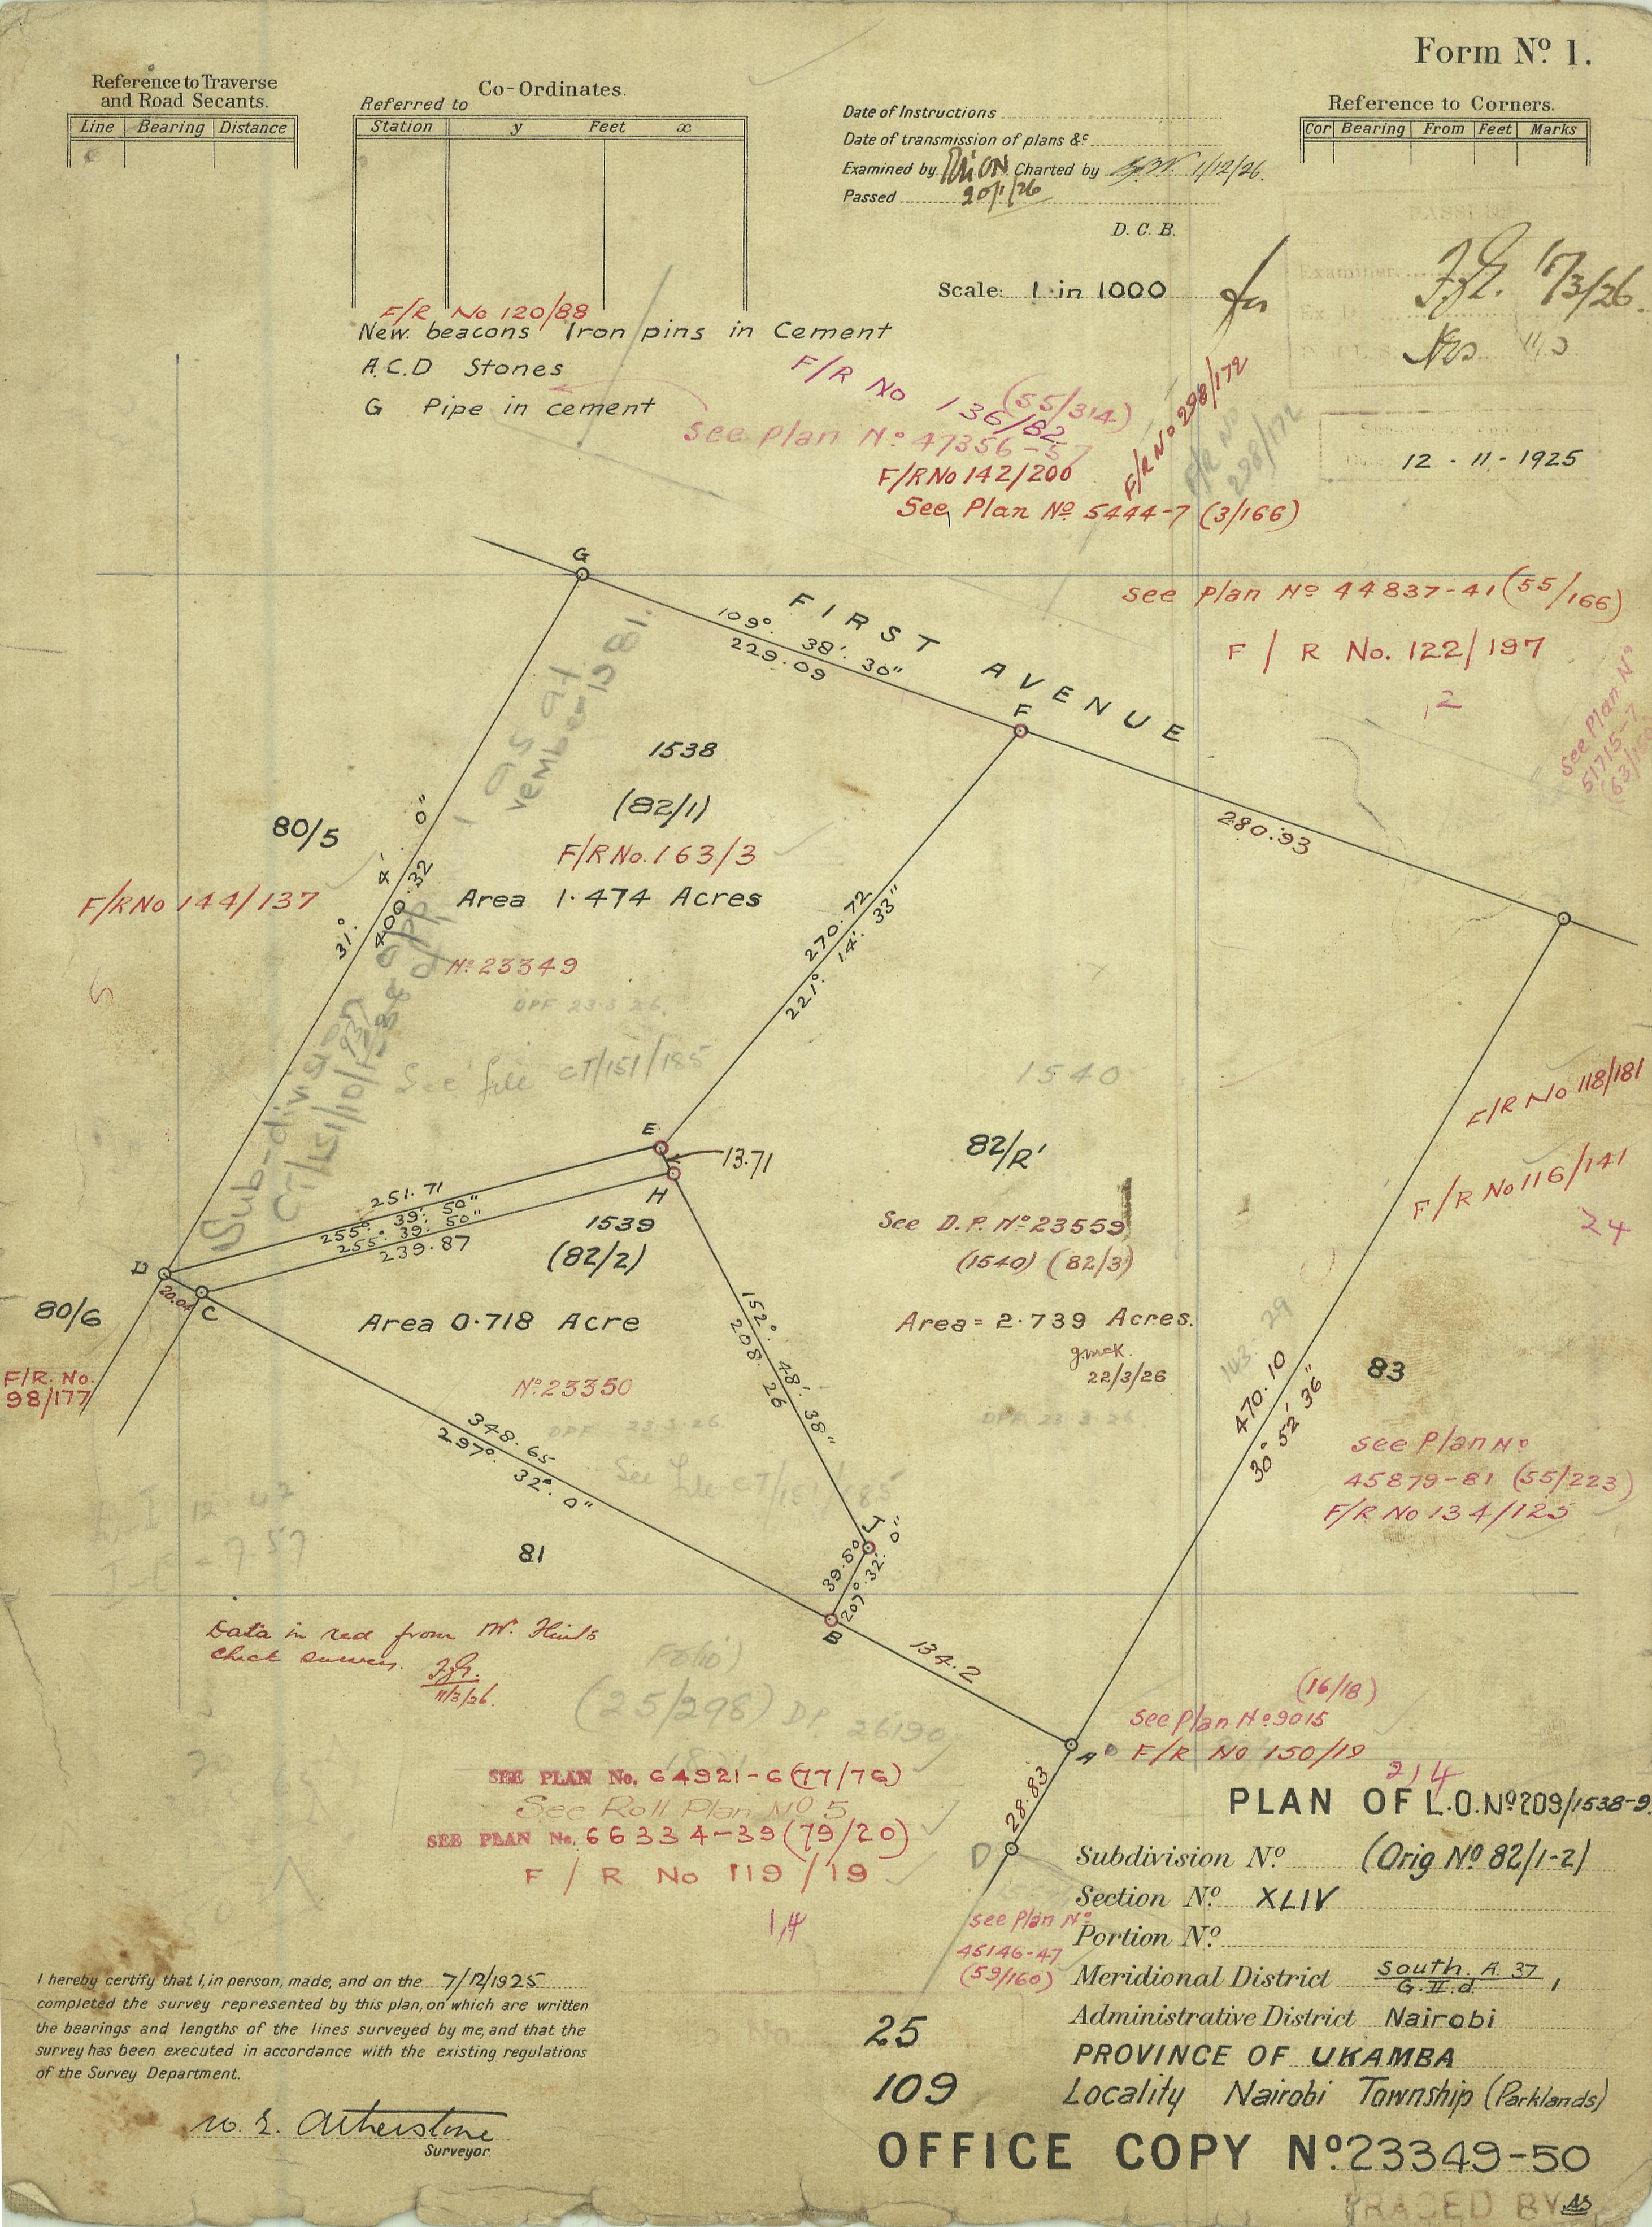 Form Nº 1.
Reference to Traverse
and Road Secants.
Line Bearing Distance
Co-Ordinates.
Referred to
Station y Feet x
Date of Instructions
Date of transmission of plans &c
Examined by Charted by 1/12/26.
Passed 20/1/26
D. C. B.
Scale: 1 in 1000
for
Reference to Corners.
Cor Bearing From Feet Marks
Examiner
17/3/26.
12 - 11 - 1925
F/R No 120/88
New beacons Iron pins in Cement
A.C.D Stones
G Pipe in cement
F/R No 136/82
(55/314)
See plan Nº 47356-57
F/R No 142/200
See Plan Nº 5444-7 (3/166)
F/R Nº 298/172
F/R No
298/172
See Plan Nº 44837-41 (55/166)
F / R No. 122/197
12
See Plan Nº
51715-7
G
FIRST AVENUE
109º. 38'. 30"
229.09
F
280.93
1538
(82/1)
F/R No. 163/3
Area 1.474 Acres
Nº 23349
DPF 23.3.26.
See file CT/151/185
80/5
F/R No 144/137
5
31º. 4'. 0"
400.32
Sub-division
270.72
221º. 14'. 33"
1540
82/R'
E
13.71
H
251.71
255º. 39'. 50"
255º. 39'. 50"
239.87
1539
(82/2)
Area 0.718 Acre
Nº 23350
DPF 23.3.26.
See file CT/151/185
D
20.04
C
80/6
F/R. No.
98/177
See D.P. Nº 23559
(1540) (82/3)
Area = 2.739 Acres.
22/3/26
DPF 23 3 26
F/R No 118/181
F/R No 116/141
24
143. 29
470.10
30º 52' 36"
83
See Plan Nº
45879-81 (55/223)
F/R No 134/125
152º. 48'. 38"
208.26
348.65
297º. 32'. 0"
81
J
39.80
207º. 32'. 0"
B
134.2
Data in red from Mr.
check survey.
11/3/26.
Folio)
(25/298) DP. 26190
(16/18)
See Plan Nº 9015
F/R No 150/19
A
28.83
D
SEE PLAN No. 64921-6 (77/76)
See Roll Plan Nº 5
SEE PLAN No. 66334-39 (79/20)
F / R No 119/19
14
214
See Plan Nº
45146-47
(59/160)
PLAN OF L.O. Nº 209/1538-9.
Subdivision Nº (Orig Nº 82/1-2)
Section Nº XLIV
Portion Nº
Meridional District South. A 37
G.II.d.
Administrative District Nairobi
PROVINCE OF UKAMBA
Locality Nairobi Township (Parklands)
25
109
OFFICE COPY Nº 23349-50
TRACED BY AS
I hereby certify that I, in person, made, and on the 7/12/1925
completed the survey represented by this plan, on which are written
the bearings and lengths of the lines surveyed by me, and that the
survey has been executed in accordance with the existing regulations
of the Survey Department.
Surveyor.